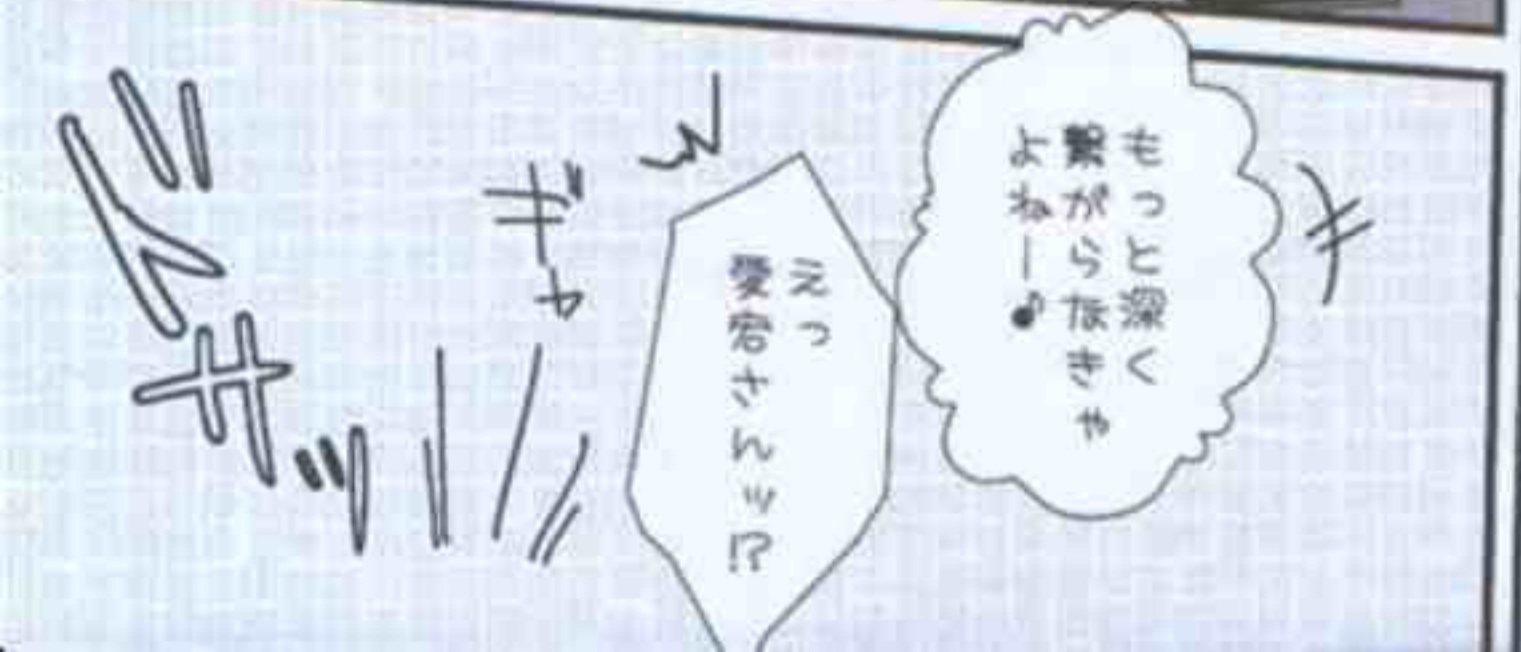 もっと深く
繋がらなきゃ
よねー♪
えっ
愛宕さんッ!?
ぎゃ
ドサッ